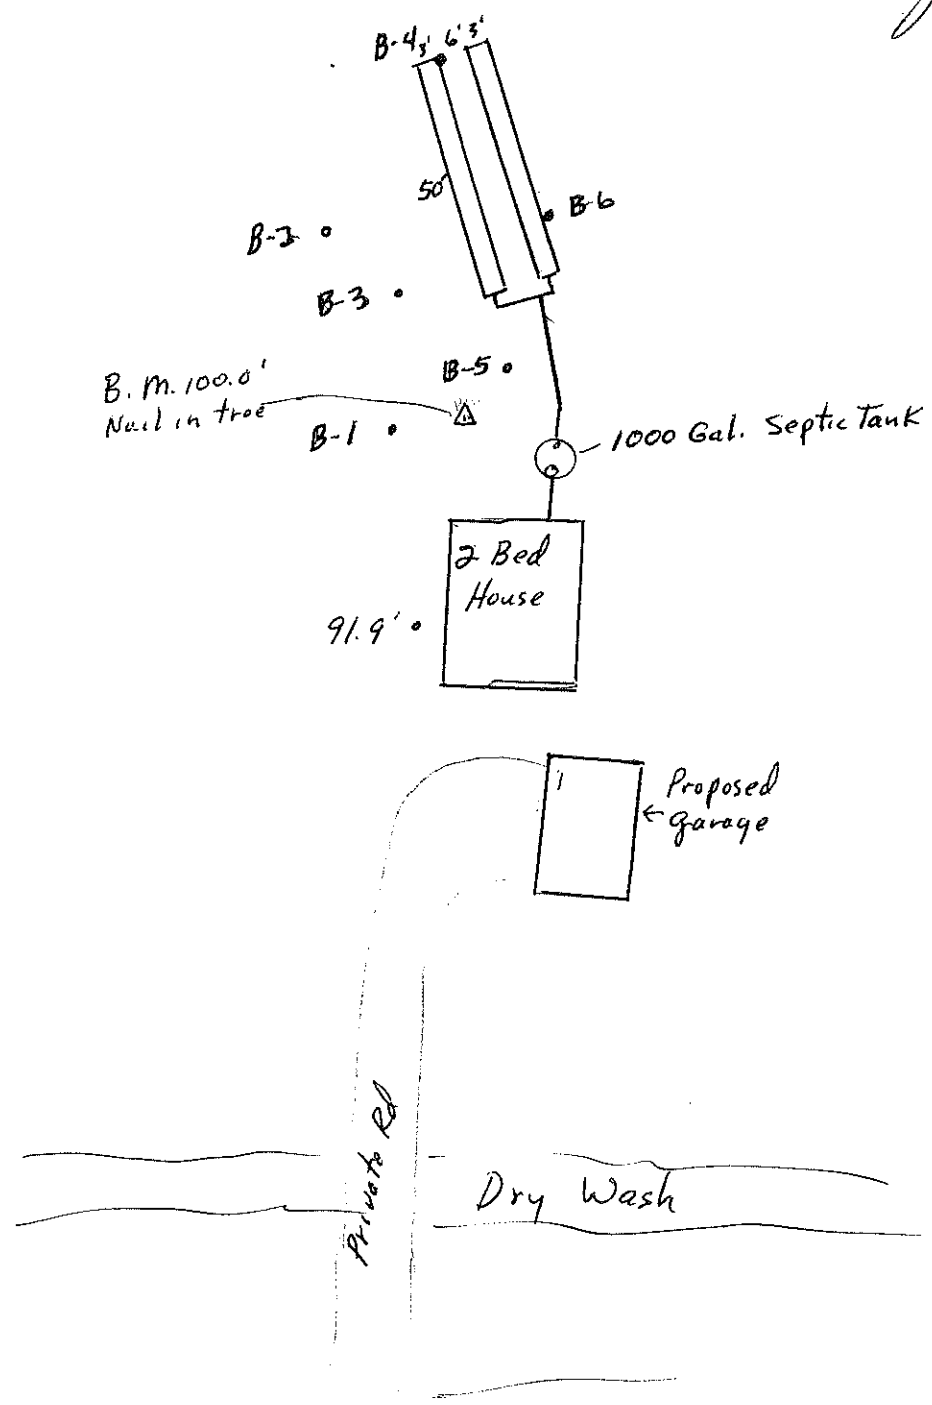 B-4 3' 6' 3'
50'
B-6
B-2
B-3
B-5
B.M. 100.0'
Nail in tree
B-1
1000 Gal. Septic Tank
2 Bed
House
91.9'
Proposed
garage
Private Rd
Dry Wash